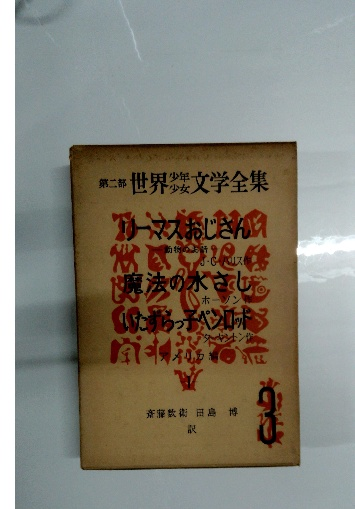 第二部 世界少年少女文学全集
リーマスおじさん
J・C・ハリス作
魔法の水さし
ホーソン作
いたずらっ子ペンロッド
ターキントン作
アメリカ編
1
斎藤数衛 田島 博
訳
3